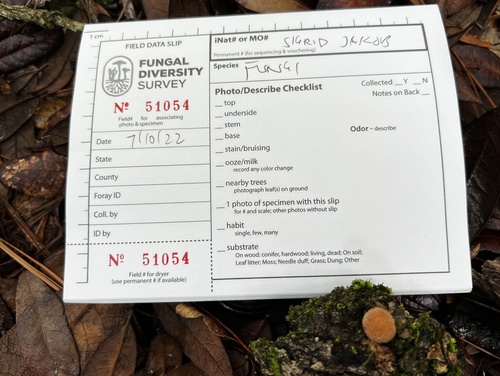 1 cm
FIELD DATA SLIP
FUNGAL
DIVERSITY
SURVEY
Nº 51054
Field# for associating
photo & specimen
Date 7/10/22
State
County
Foray ID
Coll. by
ID by
Nº 51054
Field # for dryer
(use permanent # if available)
iNat# or MO# SIGRID JAKOB
Permanent # (for sequencing & vouchering)
Species FUNGI
Photo/Describe Checklist
Collected __Y __N
Notes on Back __
__ top
__ underside
__ stem
__ base
Odor - describe
__ stain/bruising
__ ooze/milk
record any color change
__ nearby trees
photograph leaf(s) on ground
__ 1 photo of specimen with this slip
for # and scale; other photos without slip
__ habit
single, few, many
__ substrate
On wood: conifer, hardwood; living, dead; On soil;
Leaf litter; Moss; Needle duff; Grass; Dung; Other